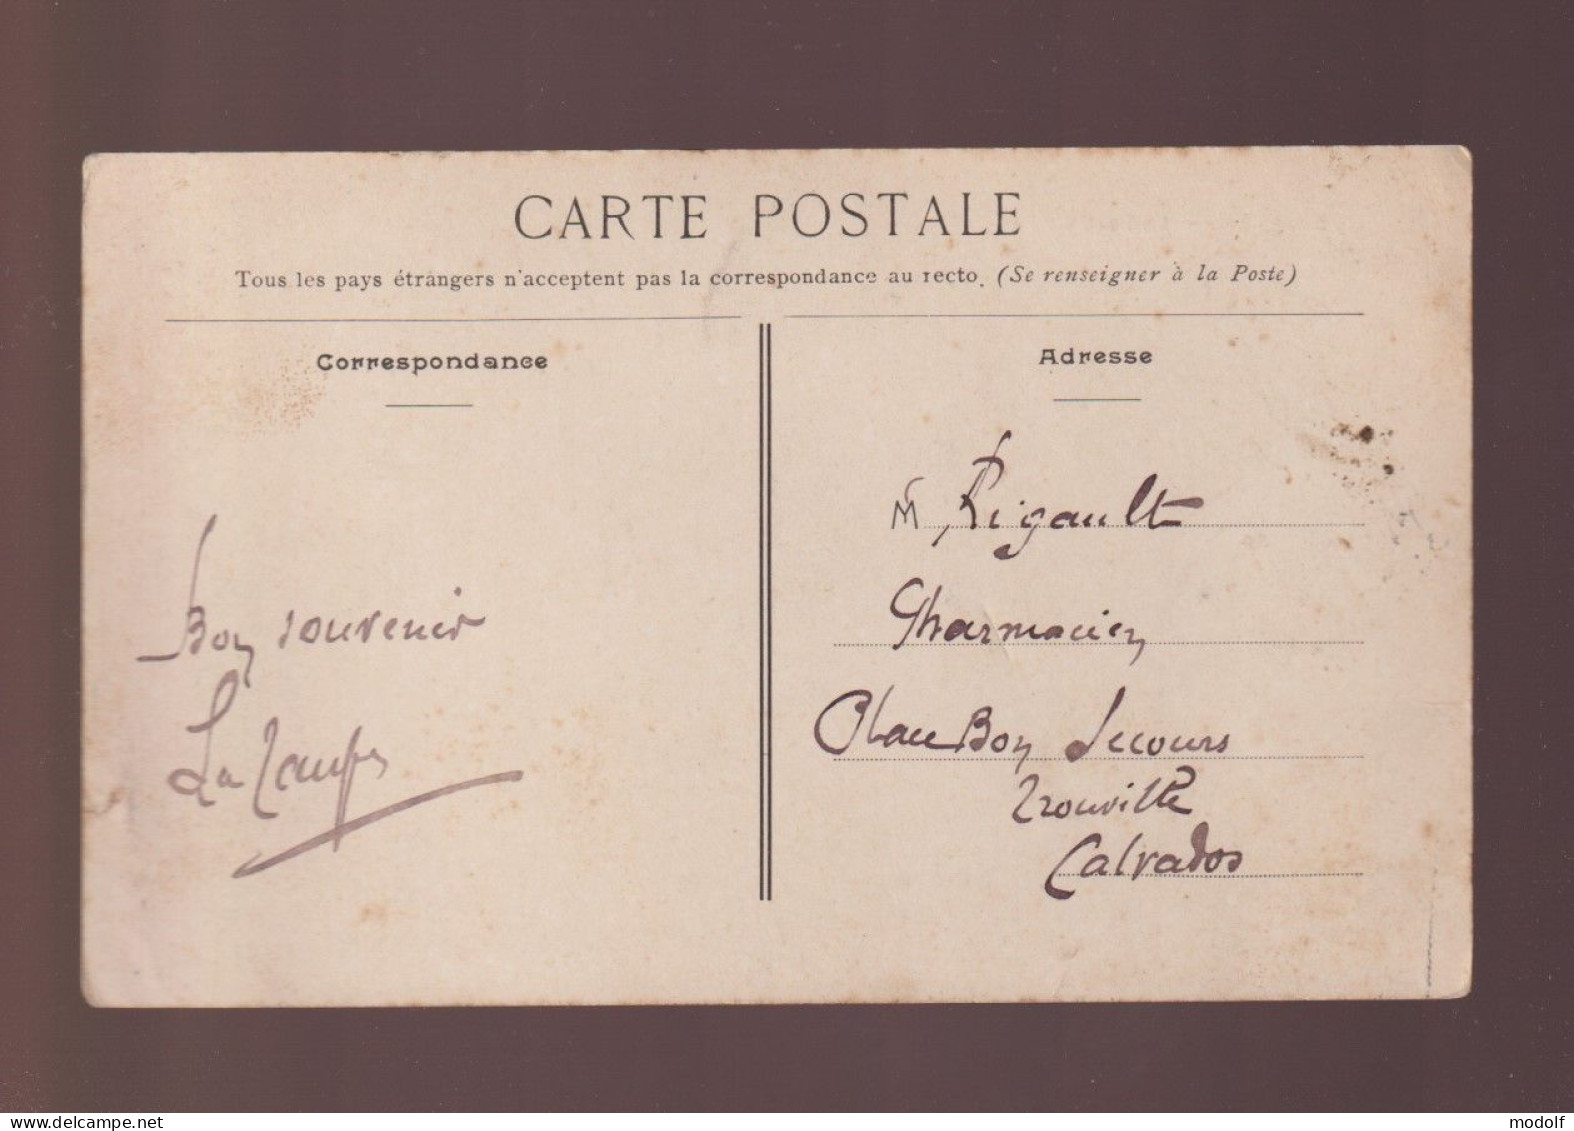 CARTE POSTALE
Tous les pays étrangers n'acceptent pas la correspondance au recto. (Se renseigner à la Poste)
Correspondance
Adresse
Bon souvenir
M Rigault
Pharmacien
Place Bon Secours
Trouville
Calvados
www.delcampe.net
modolf